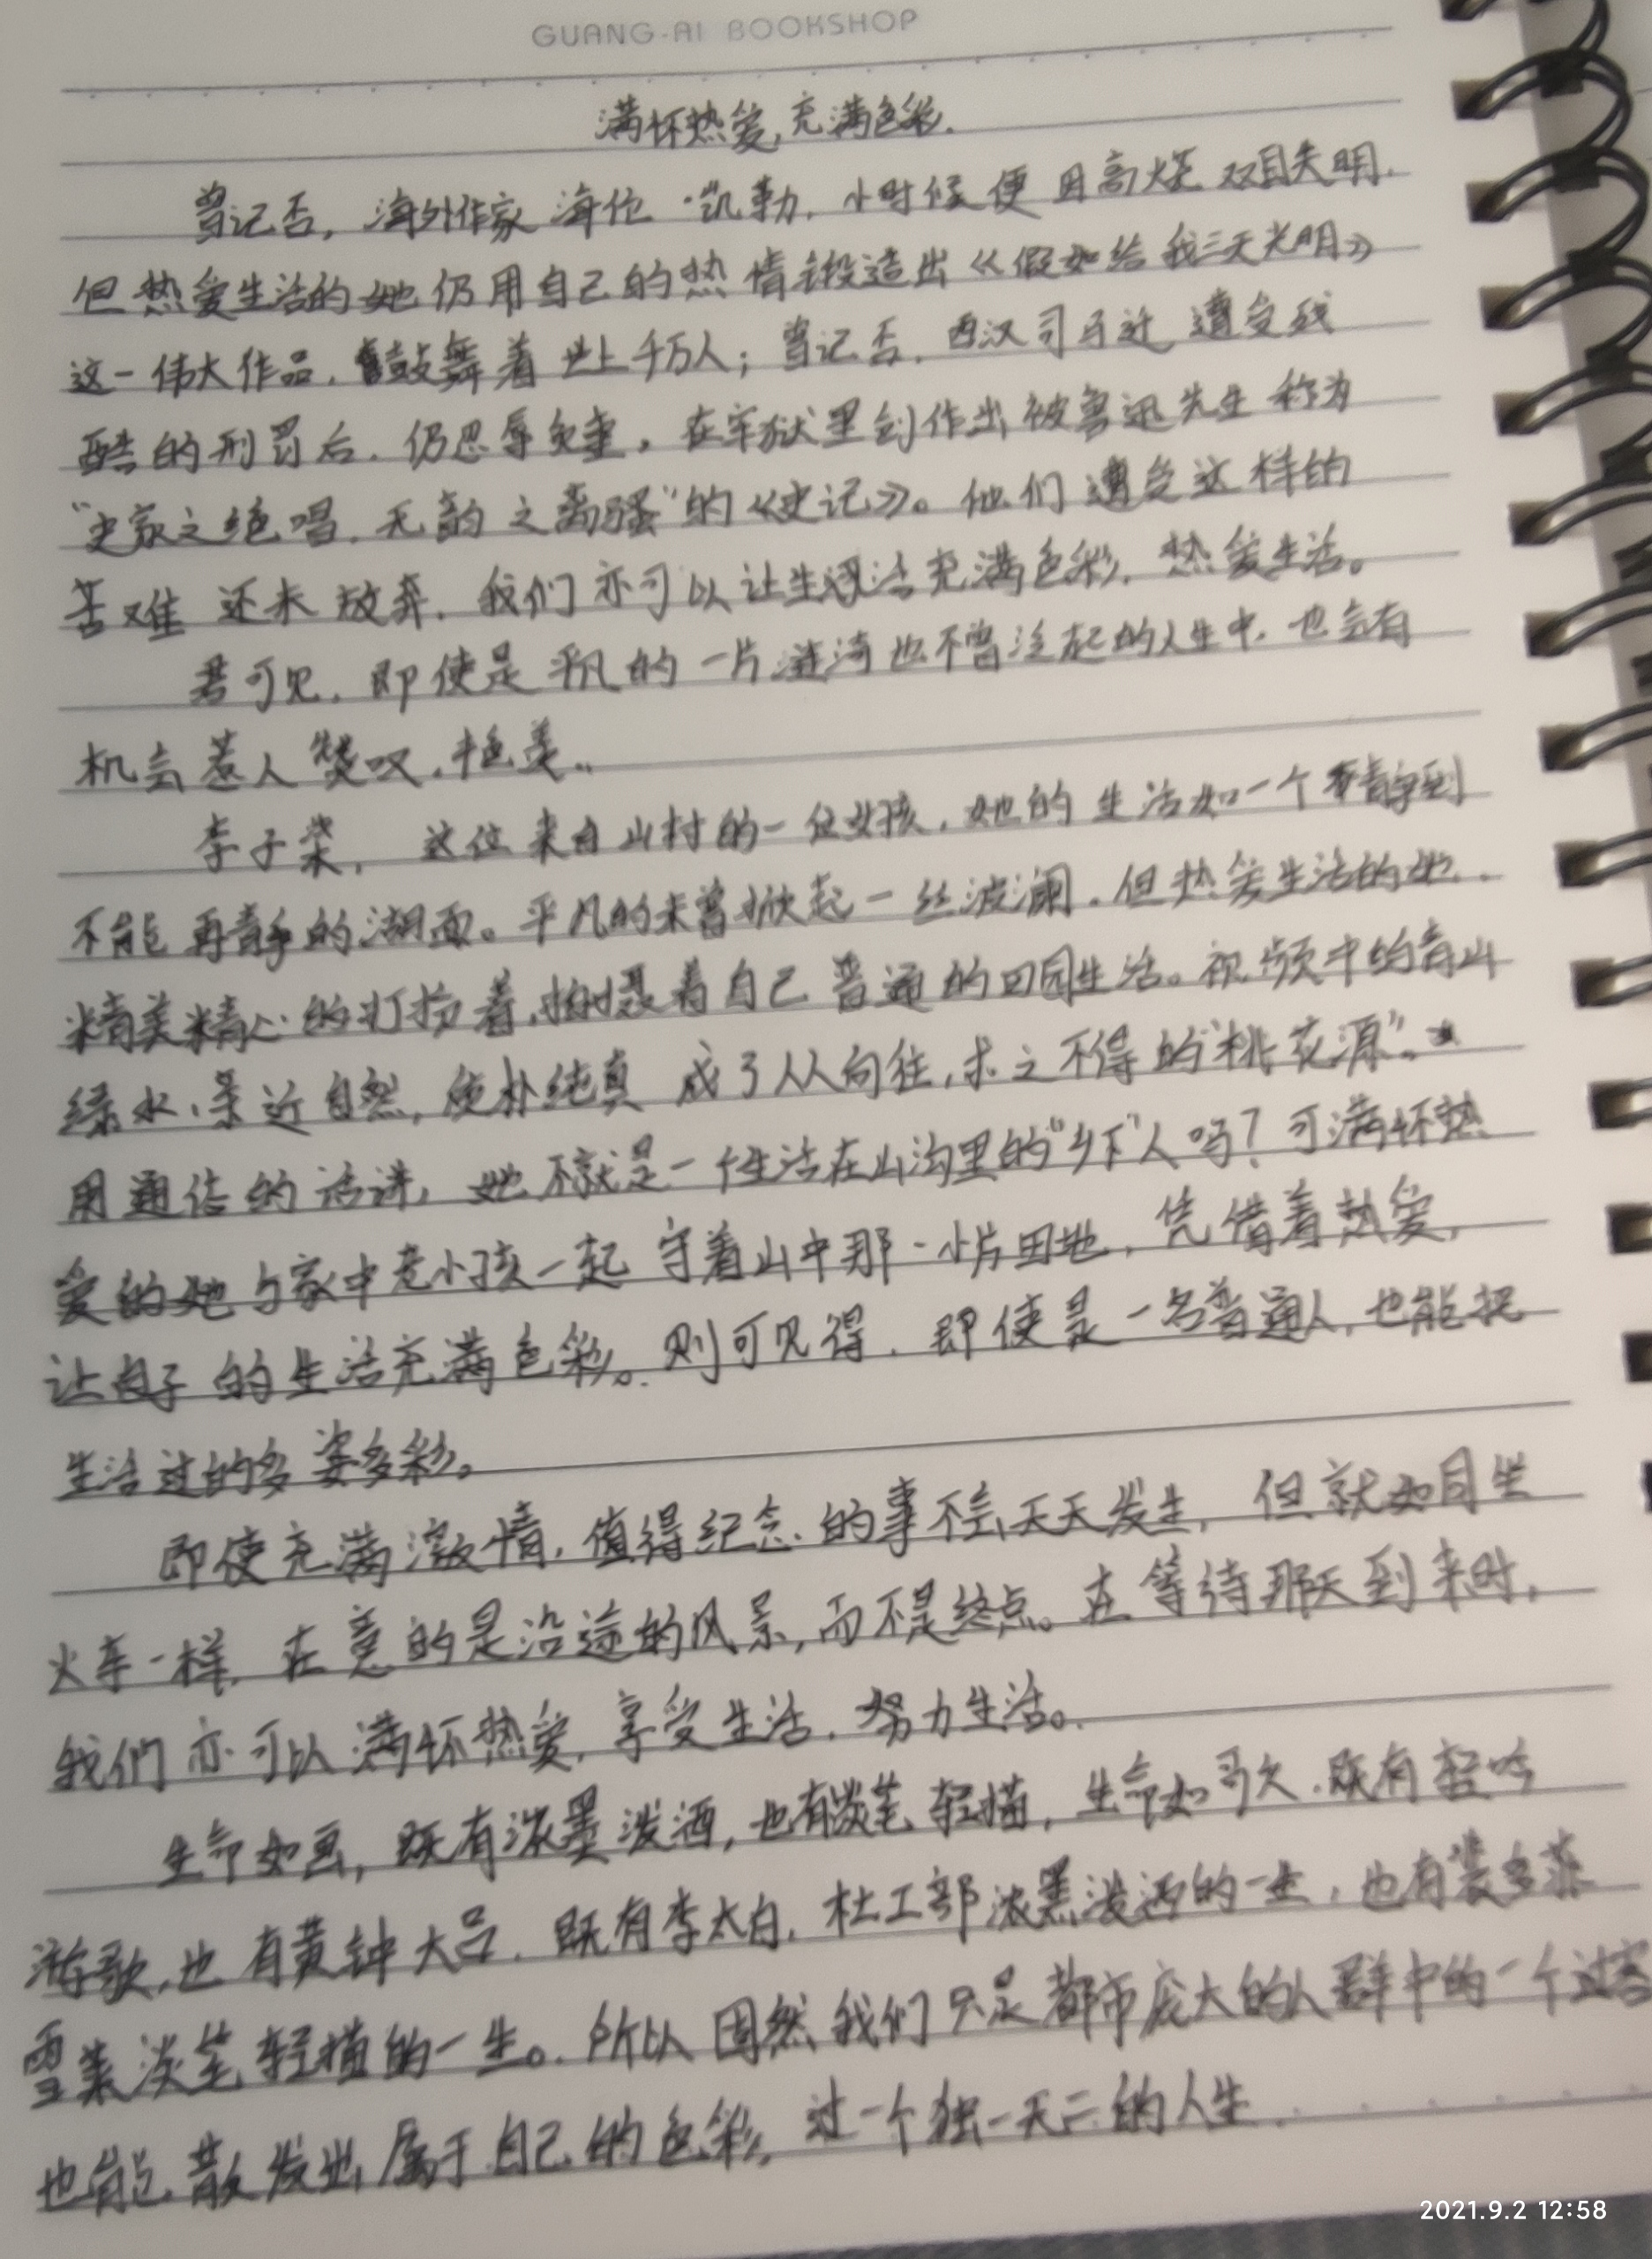 GUANG-AI BOOKSHOP
满怀热爱,充满色彩.
曾记否,海外作家海伦·凯勒,小时候便因高烧双目失明.
但热爱生活的她仍用自己的热情锻造出《假如给我三天光明》
这一伟大作品,鼓舞着世上千万人;曾记否,西汉司马迁遭受残
酷的刑罚后,仍忍辱负重,在牢狱里创作出被鲁迅先生称为
"史家之绝唱,无韵之离骚"的《史记》。他们遭受这样的
苦难还未放弃,我们亦可以让生活充满色彩,热爱生活。
君可见,即使是平凡的一片涟漪也不曾泛起的人生中,也会有
机会惹人赞叹,艳羡..
李子柒,这位来自山村的一位女孩,她的生活如一个静到
不能再静的湖面。平凡的未曾掀起一丝波澜,但热爱生活的她
精美精心的打扮着,拍摄着自己普通的田园生活。视频中的青山
绿水,亲近自然,使朴纯真成了人人向往,求之不得的"桃花源"。
用通俗的话讲,她不就是一个生活在山沟里的"乡下"人吗?可满怀热
爱的她与家中老小孩一起守着山中那一小片田地,凭借着热爱,
让日子的生活充满色彩。则可见得,即使是一名普通人,也能把
生活过的多姿多彩。
即使充满激情,值得纪念的事不会天天发生,但就如同坐
火车一样,在意的是沿途的风景,而不是终点。在等待那天到来时,
我们亦可以满怀热爱,享受生活,努力生活。
生命如画,既有浓墨泼洒,也有淡笔轻描,生命如歌,既有轻吟
游歌,也有黄钟大吕,既有李太白,杜工部浓墨泼洒的一生,也有裴多菲
雪莱淡笔轻描的一生。所以固然我们只是都市庞大的人群中的一个过客
也能散发出属于自己的色彩,过一个独一无二的人生
2021.9.2 12:58